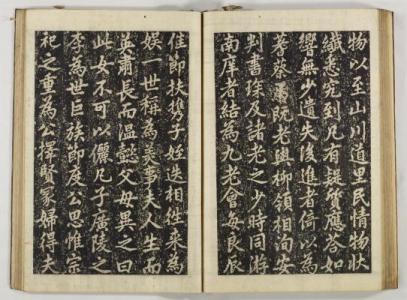 物以至山川道里民情物狀
纖悉究到凡有趨質應答如
響無少遺失後進者倚以為
蓍蔡焉既老與柳領相洵安
判書琛及諸老之少時同游
南庠者結為九老會每良辰
佳節扶攜子姪迭相往來為
娛一世稱為美事夫人生而
英肅長而溫懿父母異之曰
此女不可以儷凡子廣陵之
李為世巨族節度公思惟宗
祀之重為公擇賢冢婦得夫